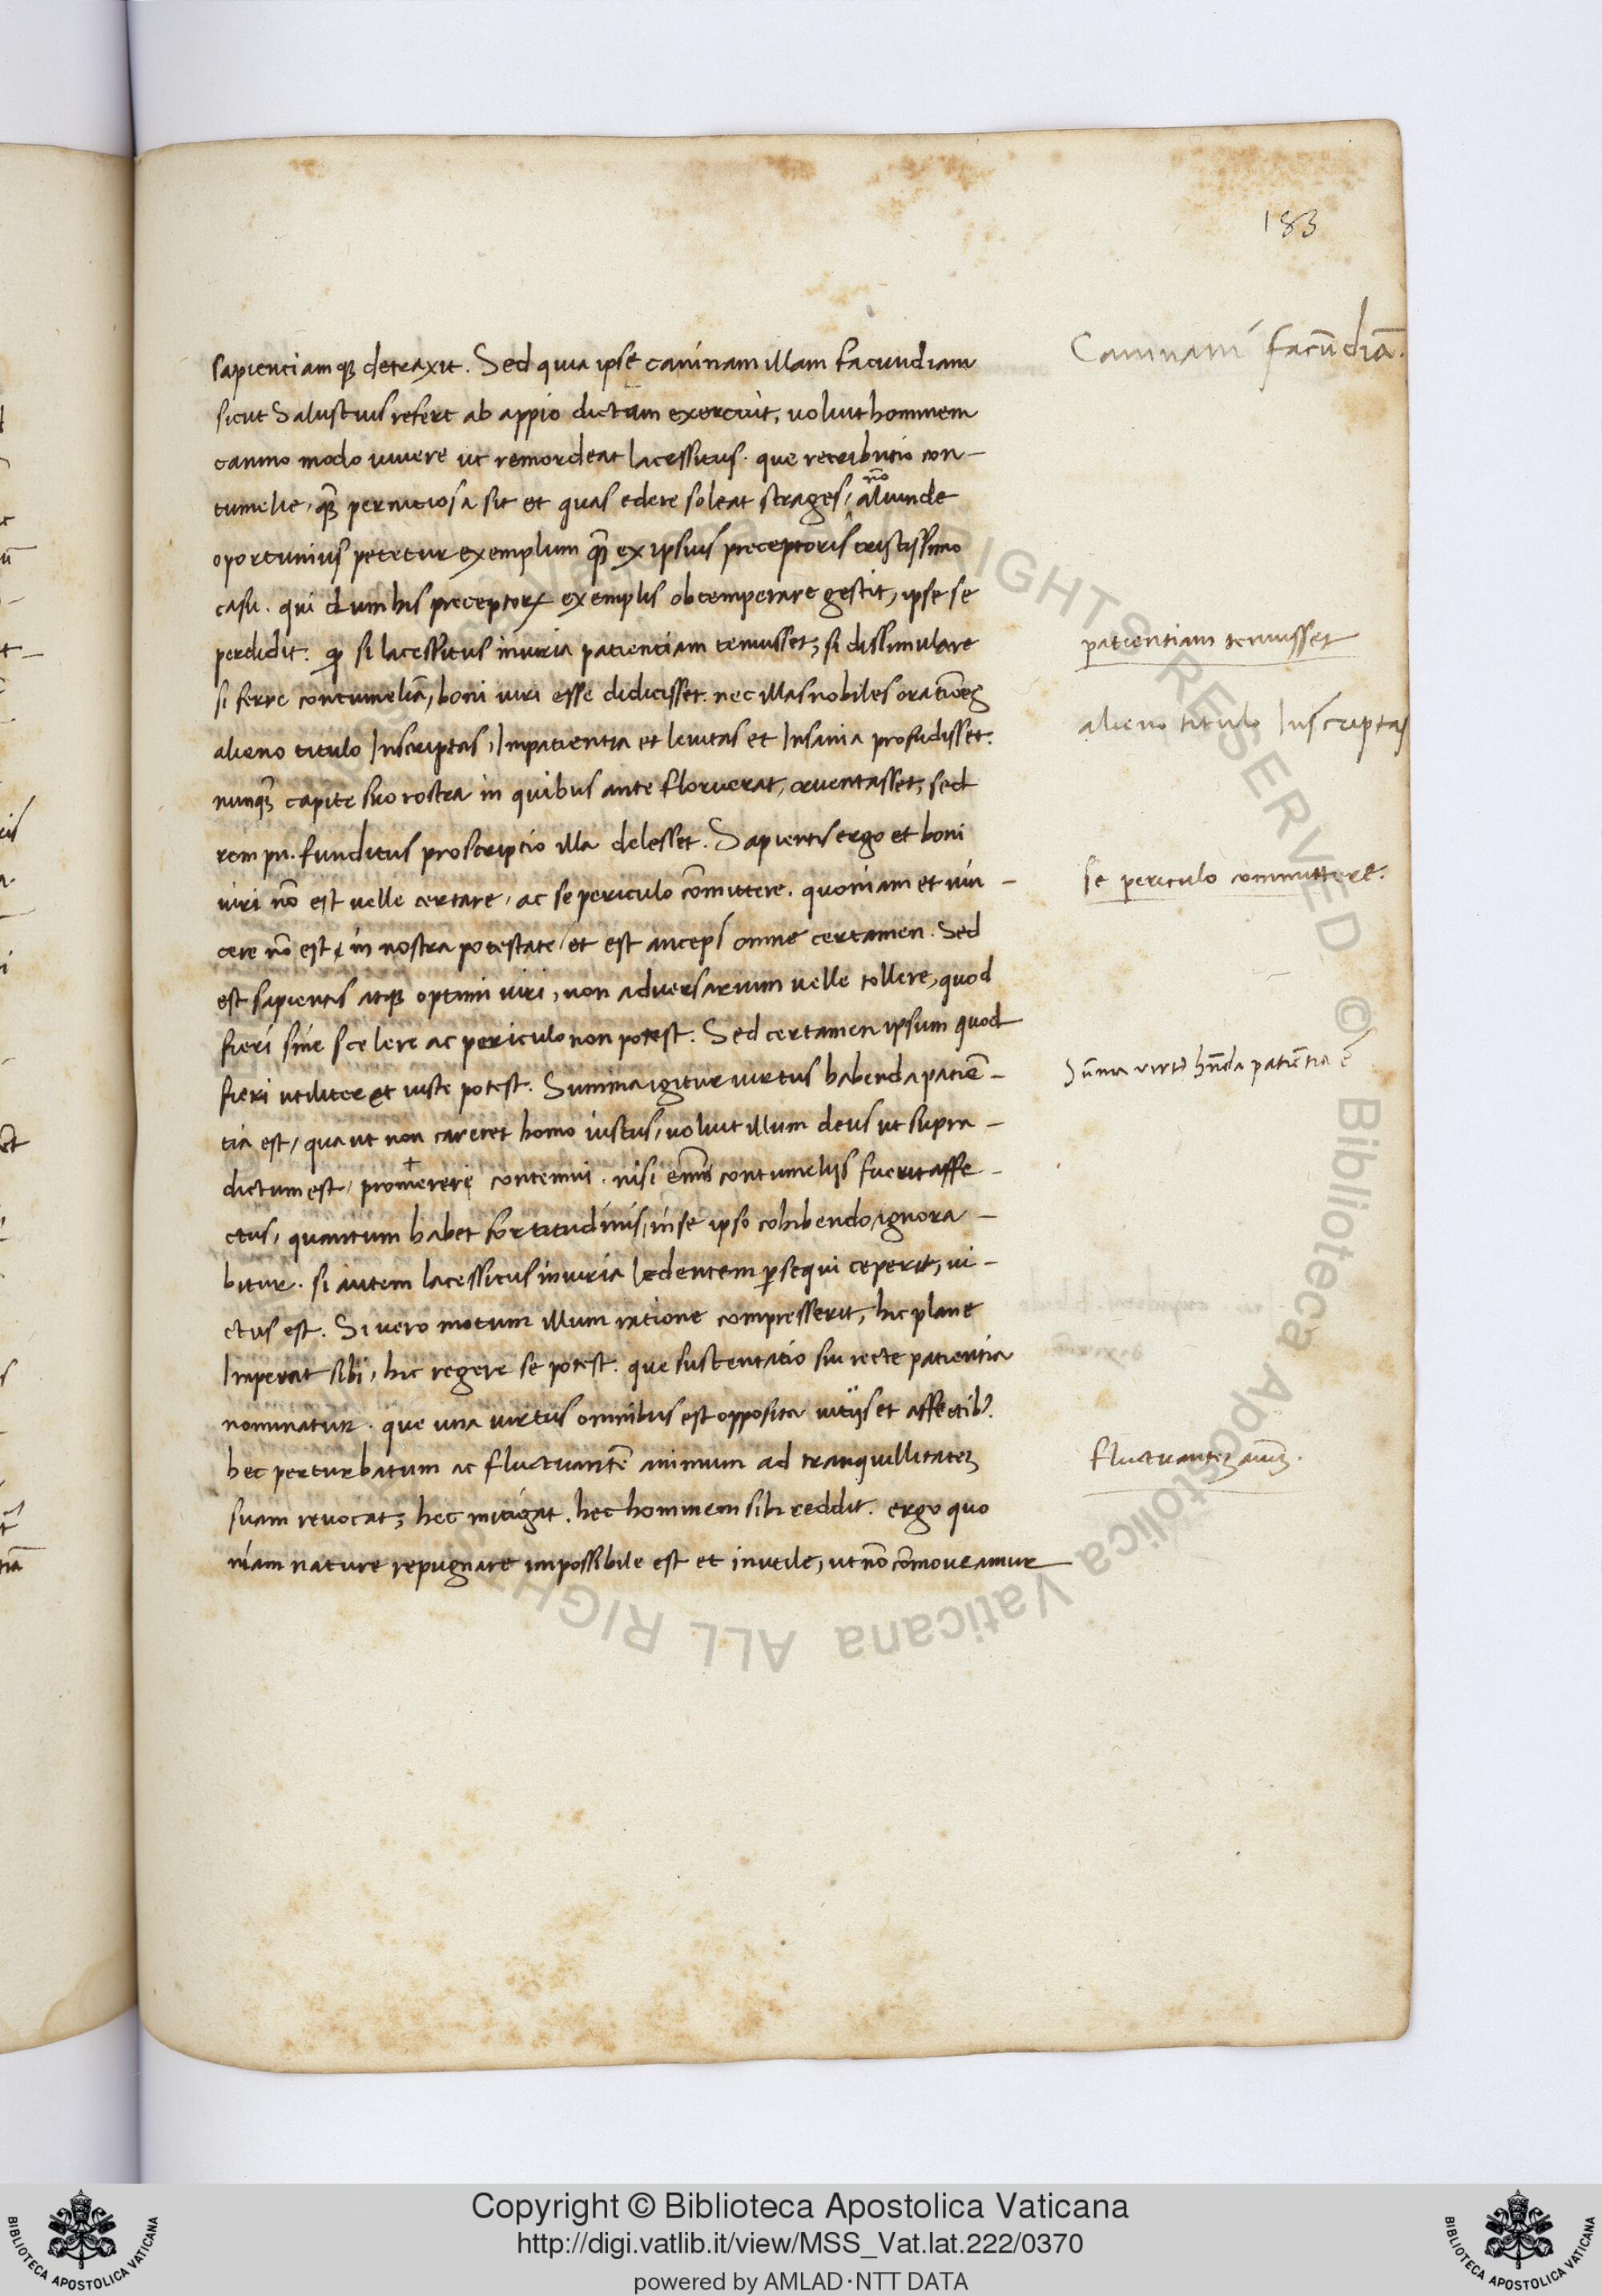 183
sapienciamqꝫ detraxit. Sed quia ipse caninam illam facundiam
sicut Salustius refert ab appio dictam exercuit, uoluit hominem
canino modo uiuere ut remordeat lacessitus. que retributio con-
tumelie, qꝫ pernitiosa sit et quas edere soleat strages, nō aliunde
oportunius petetur exemplum qꝫ ex ipsius preceptoris tristissimo
casu. qui dum his preceptoꝝ exemplis obtemperare gestit, ipse se
perdidit. qꝫ si lacessitus iniuria patienciam tenuisset, si dissimulare
si ferre contumeliā, boni uiri esse didicisset. nec illas nobiles oratiōes
alieno titulo Inscriptas, Impatientia et leuitas et Insania profudisset.
nunqꝫ capite suo rostra in quibus ante floruerat, cruentasset, sed
rem pu. funditus proscriptio illa delesset. Sapientis ergo et boni
uiri nō est uelle certare, ac se periculo cōmittere. quoniam et uin-
cere nō est in nostra potestate, et est anceps omne certamen. Sed
est sapientis atqꝫ optimi uiri, non aduersarium uelle tollere, quod
fieri sine scelere ac periculo non potest. Sed certamen ipsum quod
fieri utiliter et iuste potest. Summa igitur uirtus habenda patiē-
tia est, qua ut non careret homo iustus, uoluit illum deus ut supra-
dictum est, promerere contemni. nisi enim contumelijs fuerit affe-
ctus, quantum habet fortitudinis, in se ipso cohibendo, ignora-
bitur. si autem lacessitus iniuria ledentem ꝑsequi ceperit, ui-
ctus est. Si uero motum illum ratione compresserit, hic plane
Imperat sibi, hic regere se potest. que sustentatio sui recte patientia
nominatur. que una uirtus omnibus est opposita uitijs et affectibꝰ.
hec perturbatum ac fluctuantē animum ad tranquillitateꝫ
suam reuocat, hec mitigat. hec hominem sibi reddit. ergo quo
niam nature repugnare impossibile est et inutile, ut nō cōmoueamur
Caninam facūdiā.
patientiam tenuisset
alieno titulo Inscriptas
se periculo committere.
Sūma virtꝰ hn̄da patiētia ē
fluctuanteꝫ aīuꝫ.
© Biblioteca Apostolica Vaticana ALL RIGHTS RESERVED
Copyright © Biblioteca Apostolica Vaticana
http://digi.vatlib.it/view/MSS_Vat.lat.222/0370
powered by AMLAD·NTT DATA
BIBLIOTECA APOSTOLICA VATICANA
BIBLIOTECA APOSTOLICA VATICANA